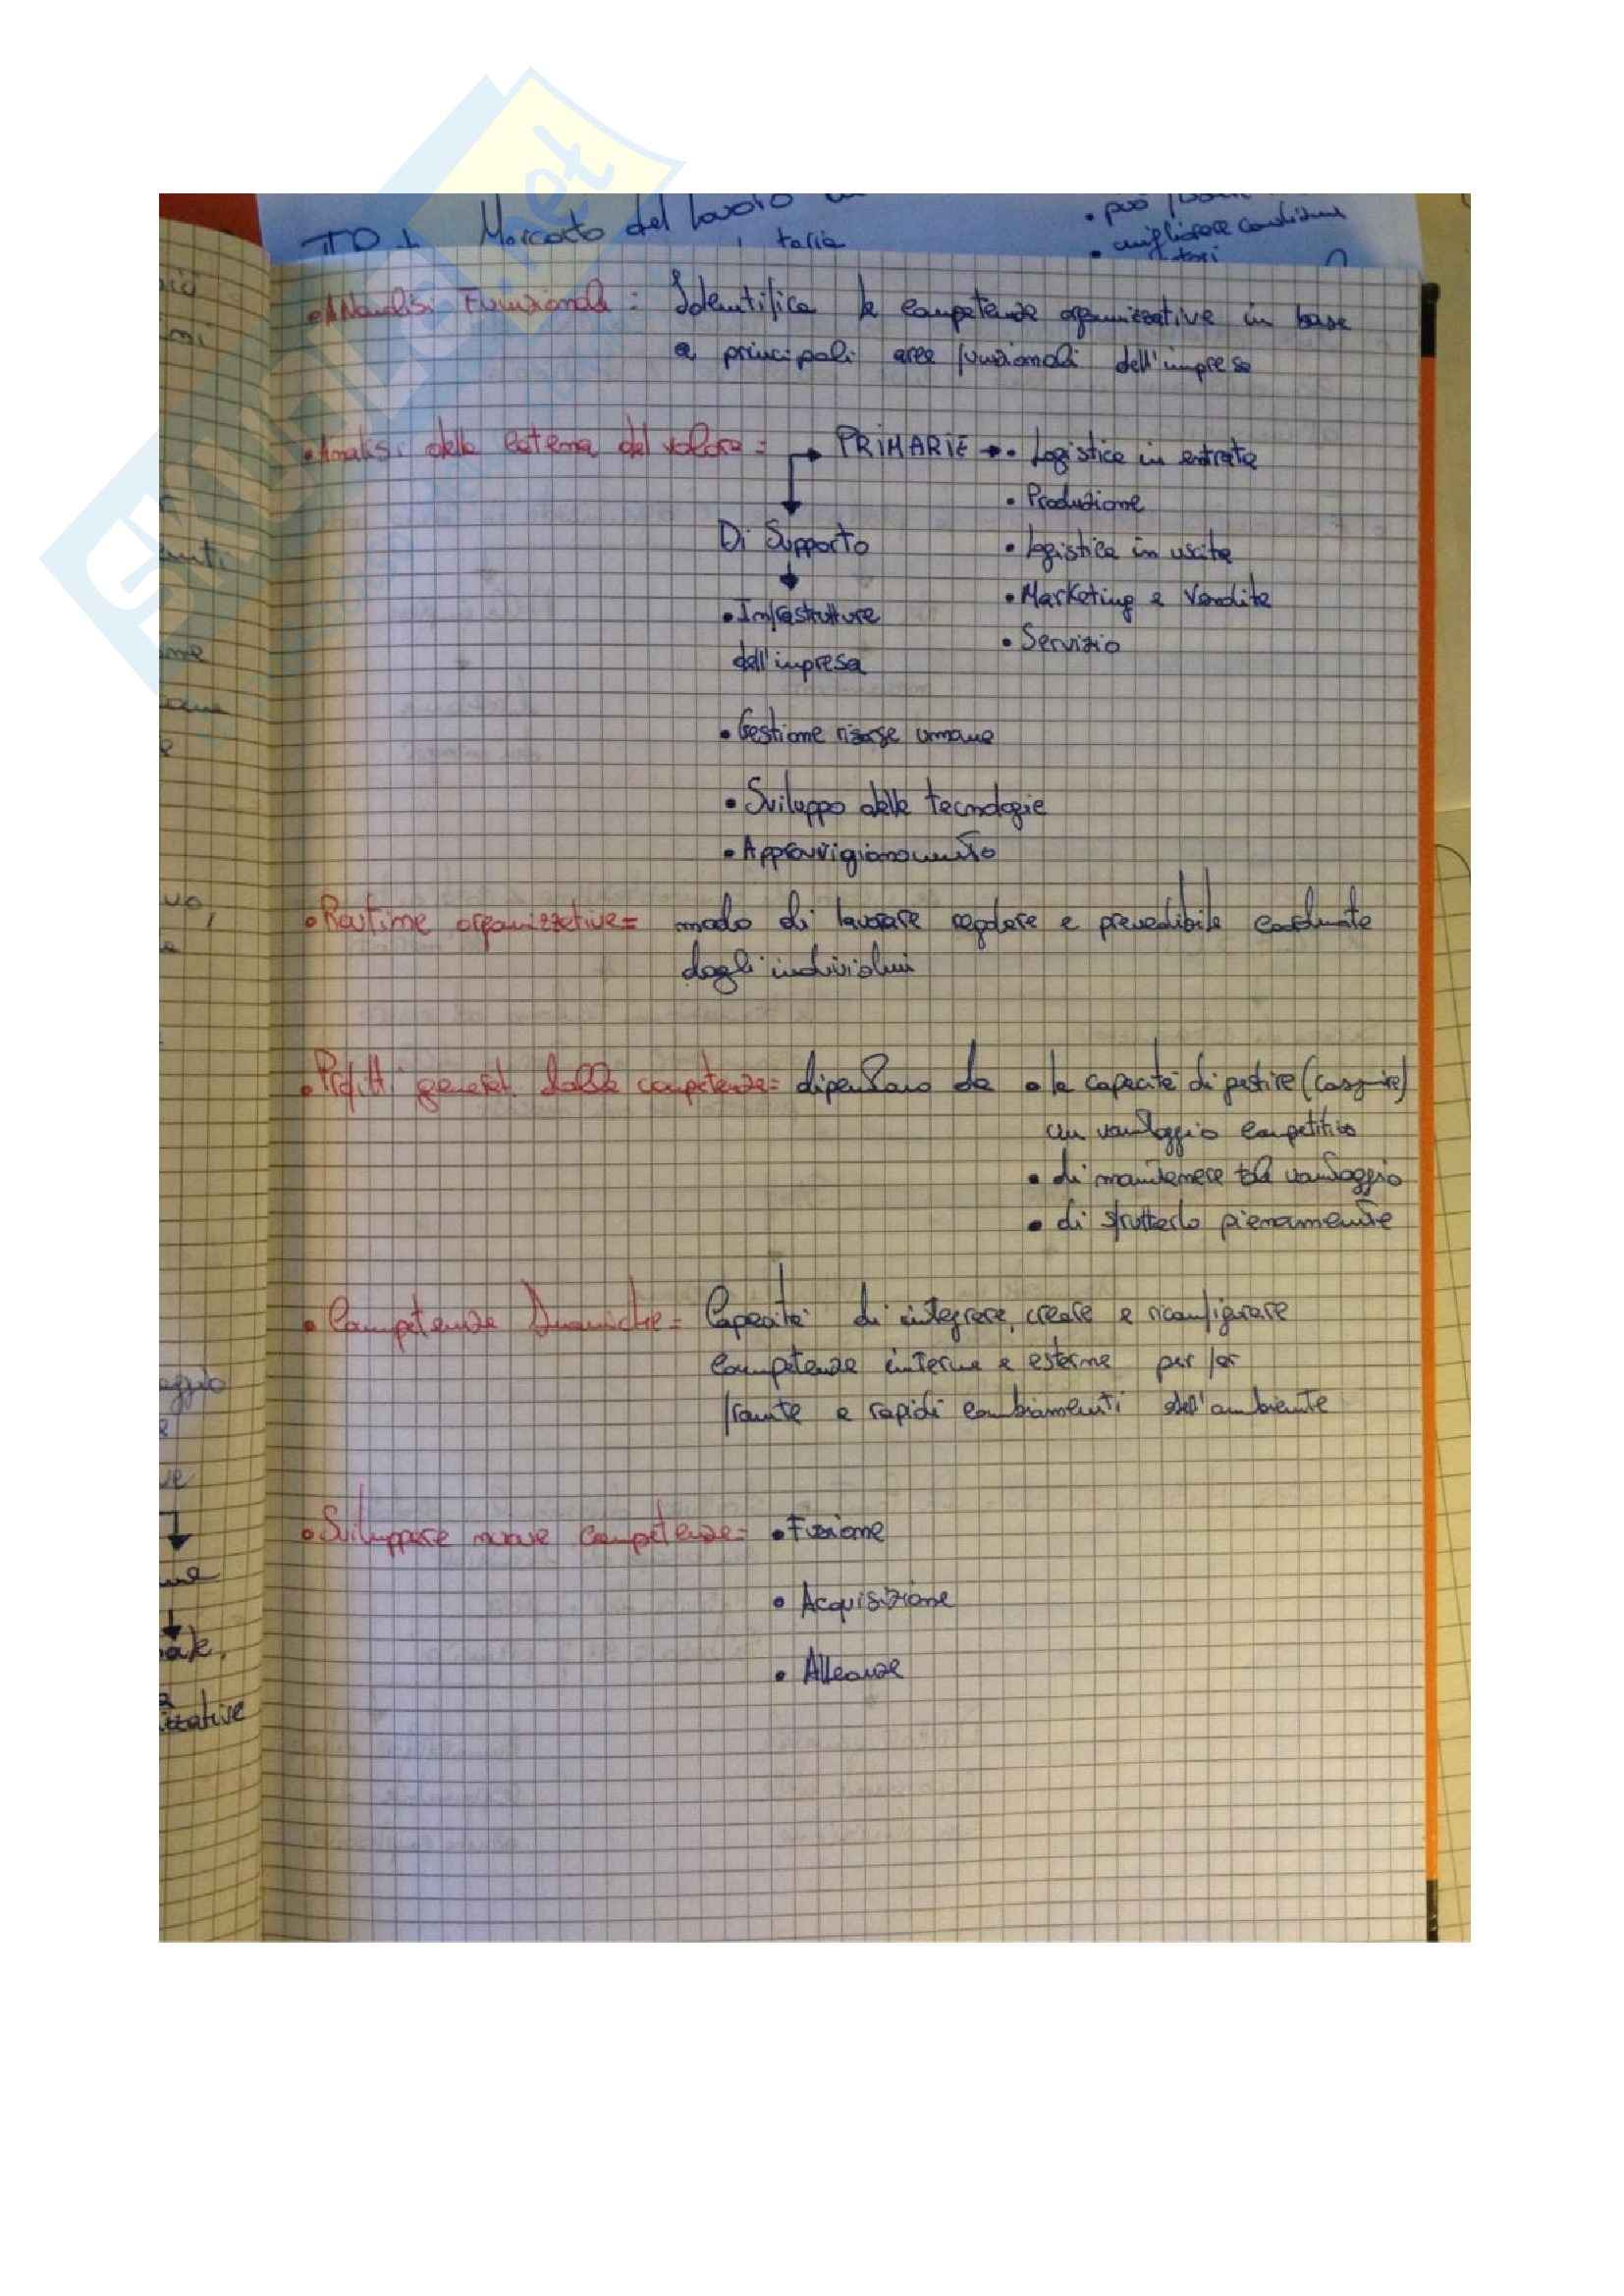 Mercato del lavoro
• può
• migliorare condizioni
• Analisi Funzionale : Identifica le competenze organizzative in base
a principali aree funzionali dell'impresa
• Analisi della catena del valore = → PRIMARIE → • Logistica in entrata
• Produzione
Di Supporto
• Logistica in uscita
• Marketing e Vendite
• Infrastrutture
• Servizio
dell'impresa
• Gestione risorse umane
• Sviluppo delle tecnologie
• Approvvigionamento
• Routine organizzative = modo di lavorare regolare e prevedibile coordinate
dagli individui
• Profitti generati dalle competenze = dipendano da • la capacità di gestire
un vantaggio competitivo
• di mantenere tal vantaggio
• di sfruttarlo pienamente
• Competenze Dinamiche = Capacità di integrare, creare e riconfigurare
competenze interne e esterne per far
fronte a rapidi cambiamenti dell'ambiente
• Sviluppare nuove competenze = • Fusione
• Acquisizione
• Alleanze